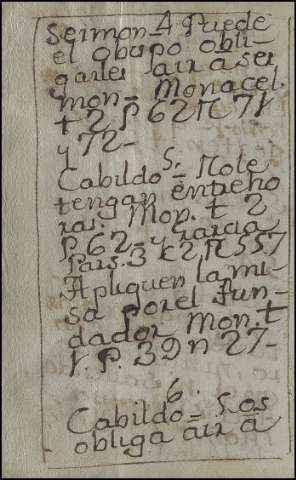 Sermon 4 Puede
el obispo obli-
garles air a ser
mon = Monacel.
t 2 P 62 N 71
y 72 -
5.
Cabildo = No le
tengan entre ho
ras. Mon. t 2
P. 62 - y Garcia
Pais. 3 c 2 N 557
Apliquen la mi-
sa por el fun-
dador Mon. t
1. P. 39 n 27 -
6.
Cabildo = S. os
obliga air a